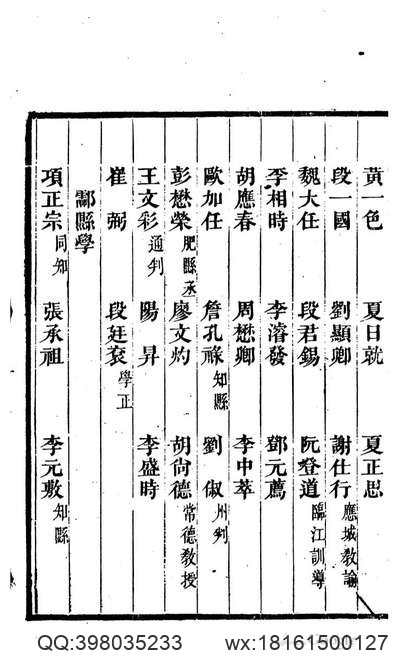 黃一色 夏日就 夏正思
段一國 劉顯卿 謝仕行 應城教諭
魏大任 段君錫 阮登道 臨江訓導
李相時 李濬發 鄧元薦
胡應春 周懋卿 李中萃
歐加任 詹孔祿 知縣 劉俶 州判
彭懋榮 肥縣丞 廖文灼 胡尙德 常德教授
王文彩 通判 陽昇 李盛時
崔弼 段廷袞 學正
酃縣學
項正宗 同知 張承祖 李元敷 知縣
QQ:398035233 wx:18161500127